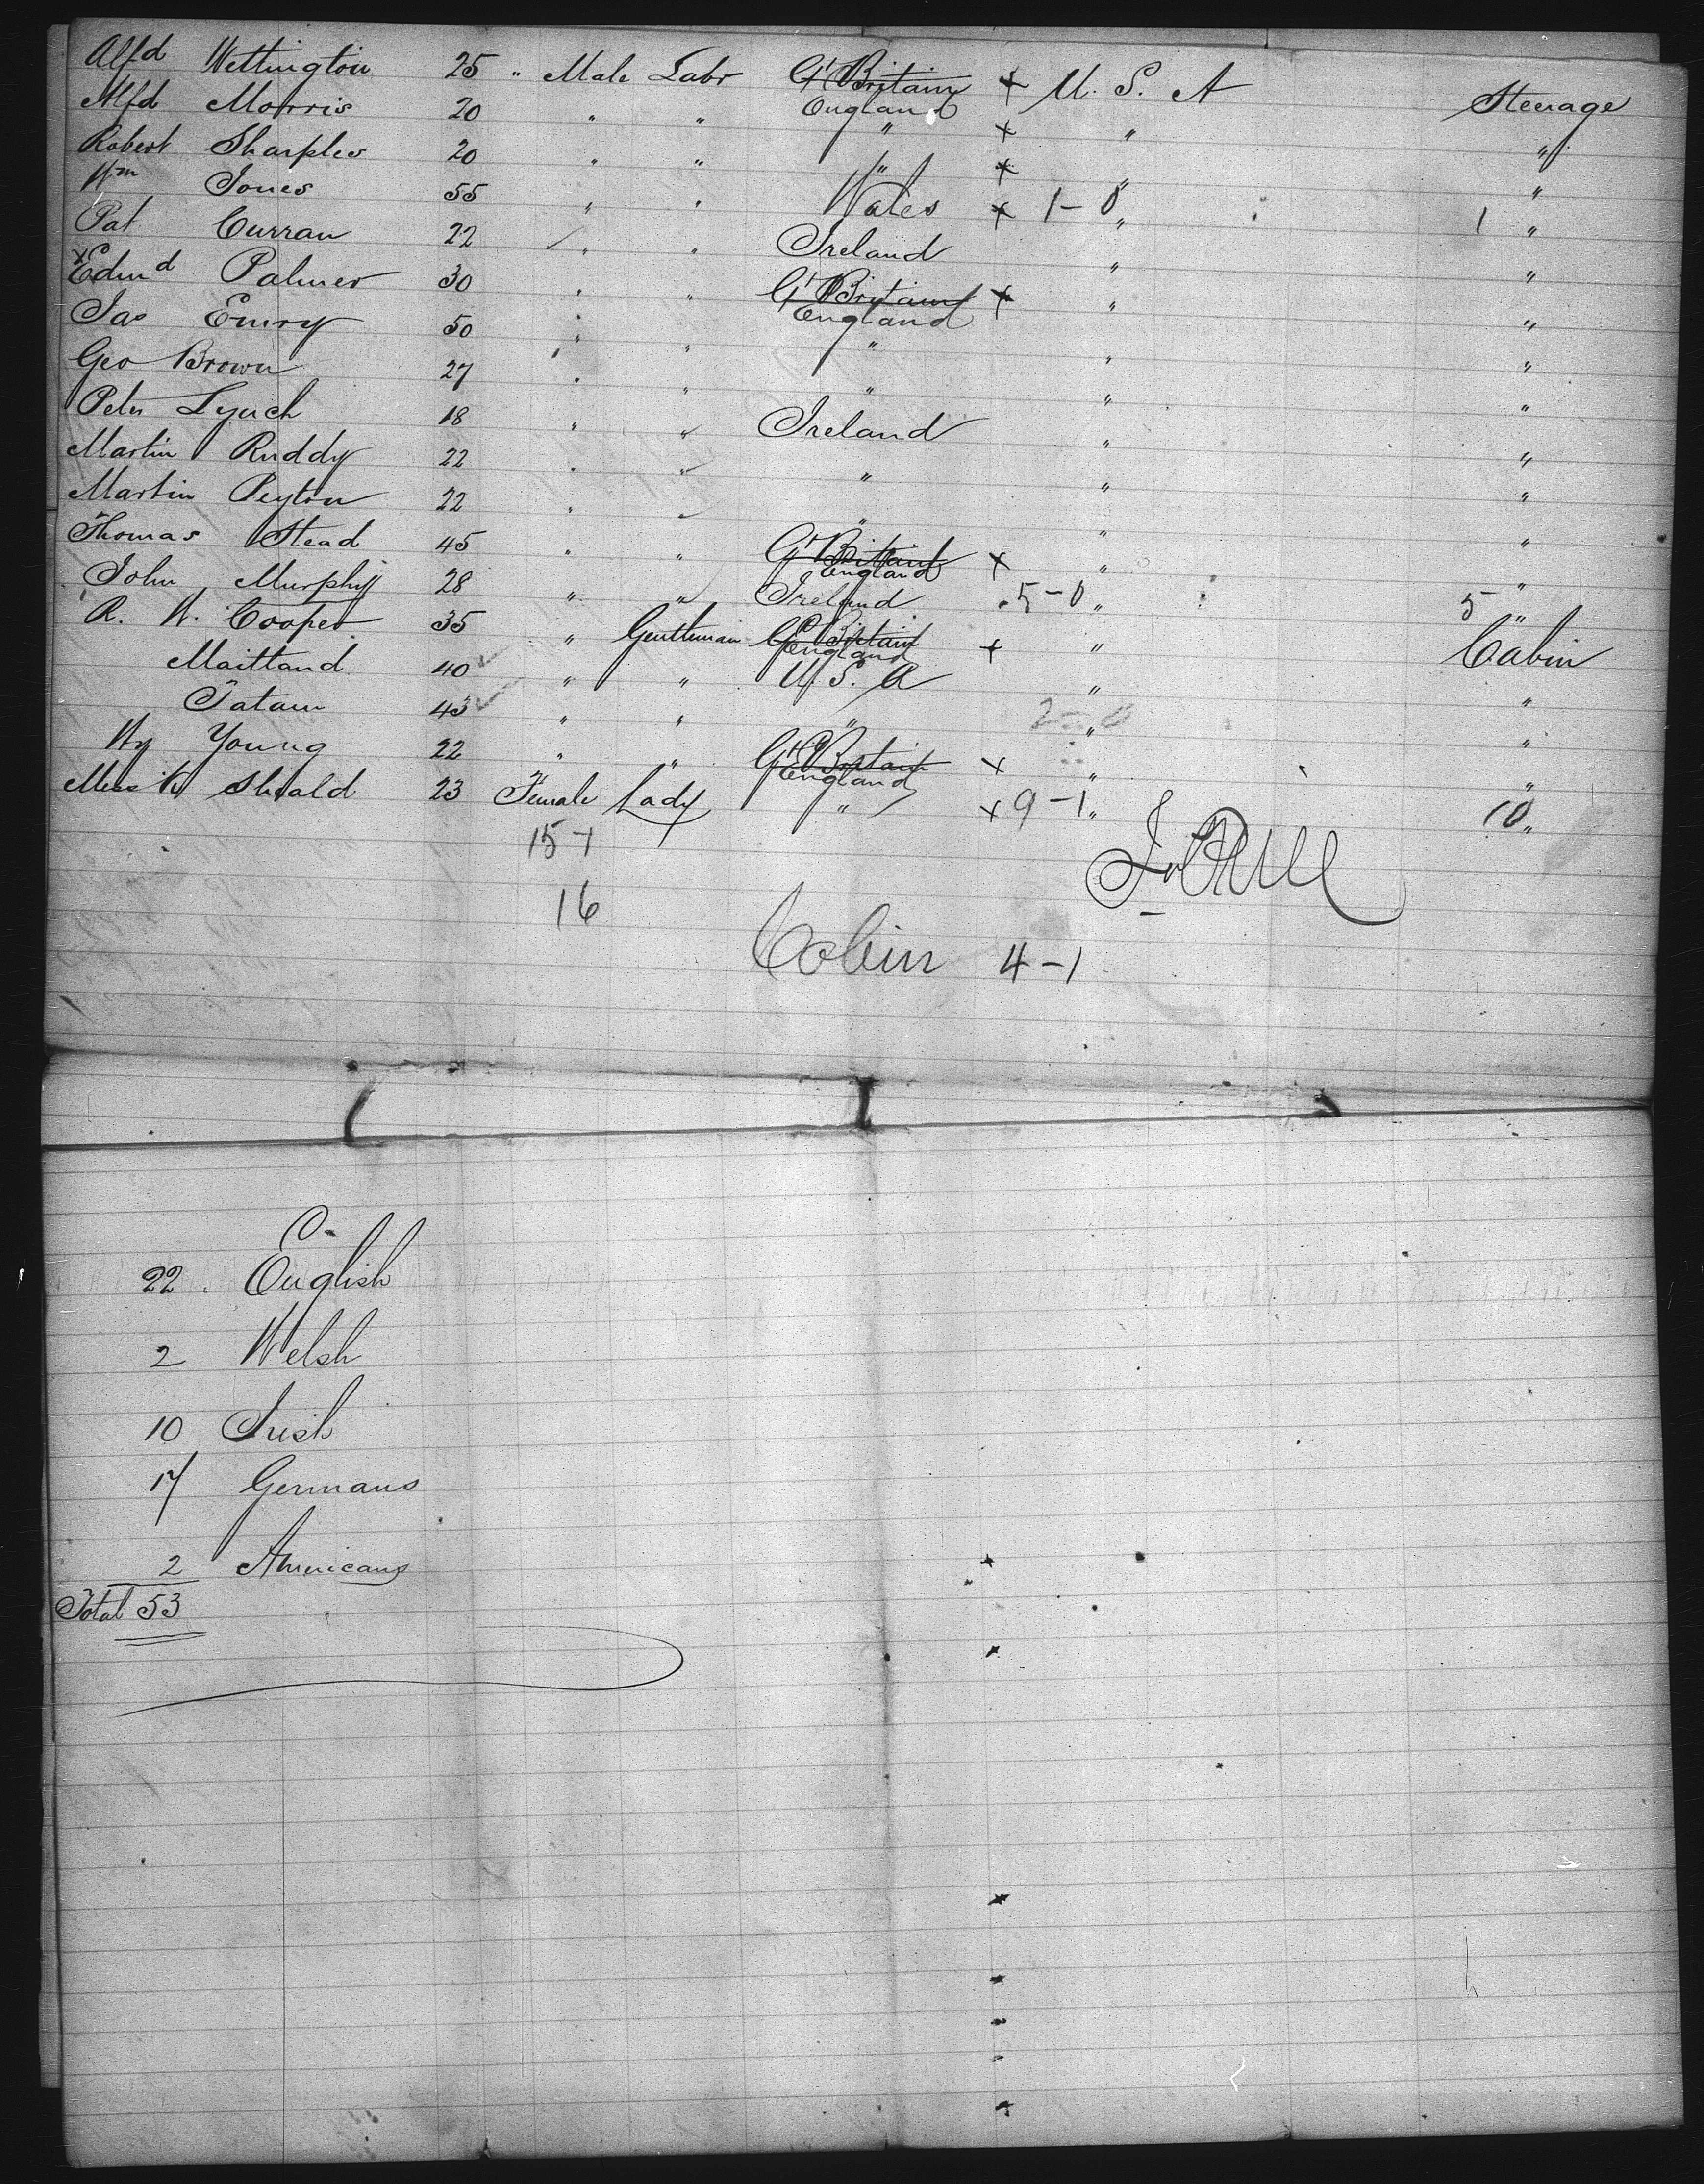 Alfd Wettington 25 " Male Labr Gt Britain England + U. S. A Steerage
Alfd Morris 20 " " " + " "
Robert Sharples 20 " " " + " "
Wm Jones 55 " " Wales + 1-0 " 1 "
Pat Curran 22 " " Ireland " "
x Edmd Palmer 30 " " Gt Britain England + " "
Jas Emry 50 " " " " "
Geo Brown 27 " " " " "
Peter Lynch 18 " " Ireland " "
Martin Ruddy 22 " " " " "
Martin Peyton 22 " " " " "
Thomas Stead 45 " " Gt Britain England x " "
John Murphy 28 " " Ireland 5-0 " 5 "
R. W. Cooper 35 " Gentleman Gt Britain England + " Cabin
Maitland 40 " " U. S. A " "
Tatam 43 " " " 2-0 " "
Hy Young 22 " " Gt Britain England x " "
Miss K Shield 23 Female Lady " x 9-1 " 10 "
15-1
16
Cabin 4-1
22 English
2 Welsh
10 Irish
17 Germans
2 Americans
Total 53